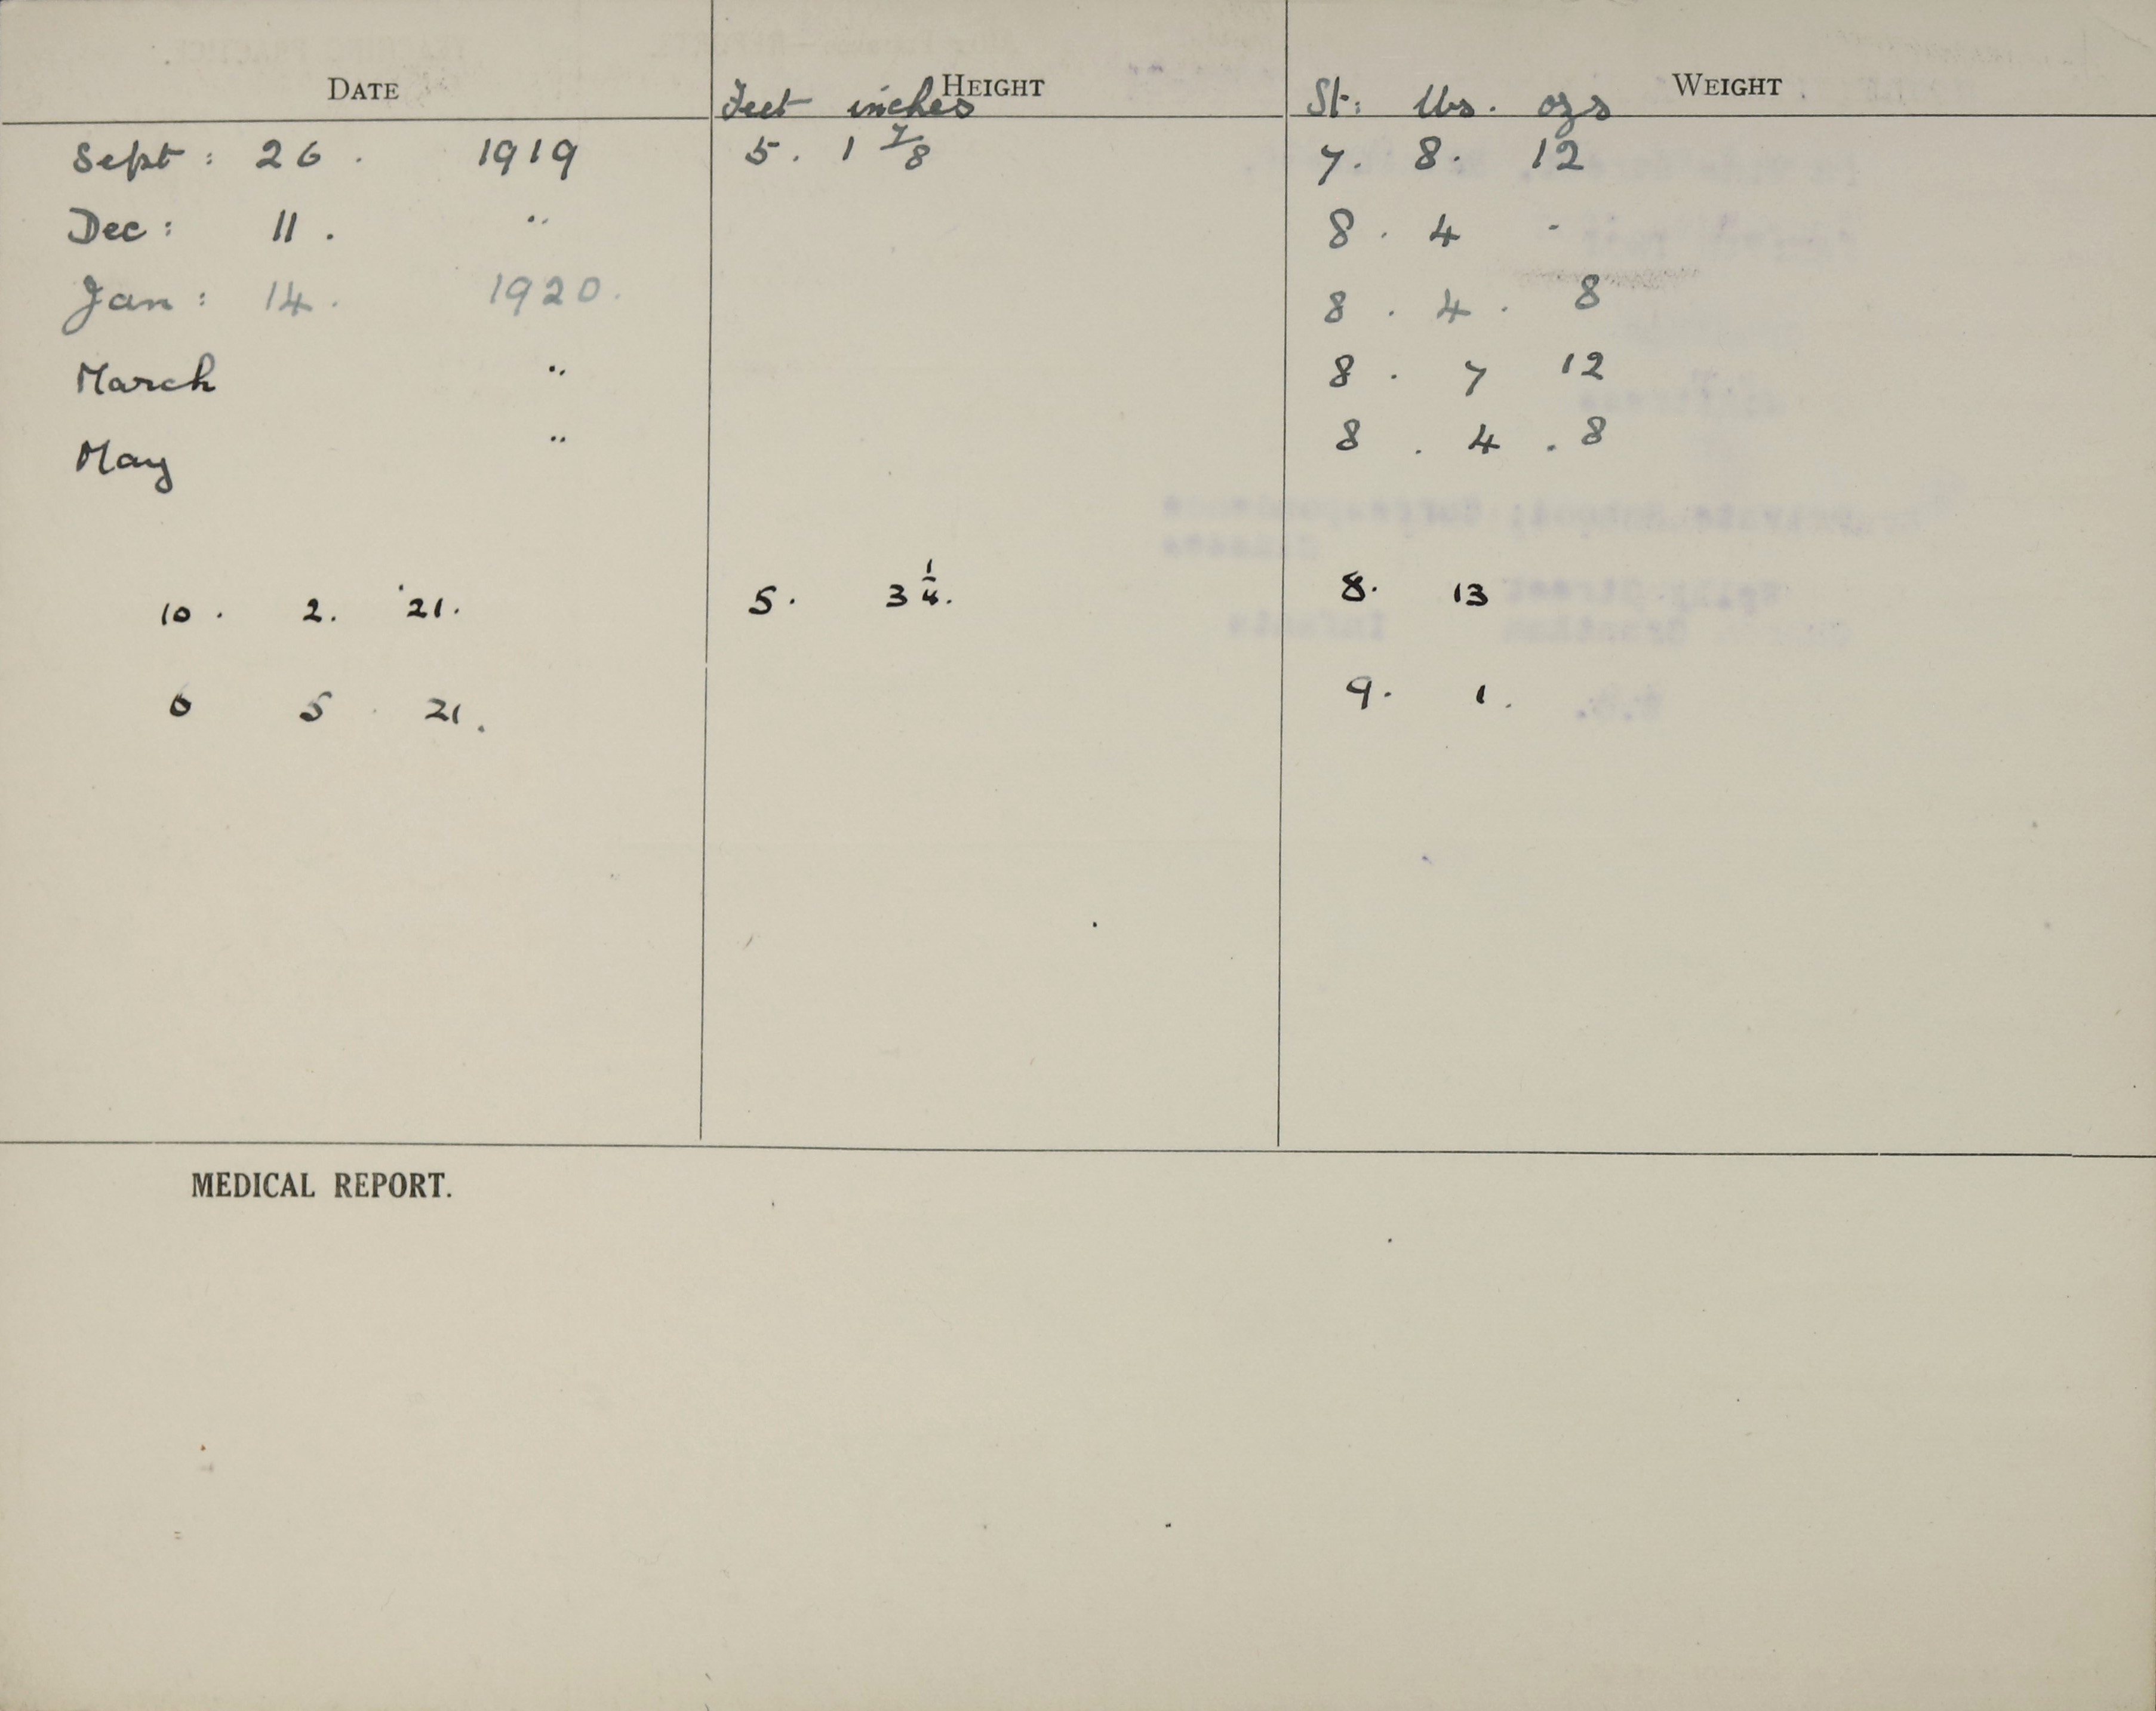 DATE HEIGHT WEIGHT
Feet inches St: lbs. ozs
Sept: 26. 1919 5. 1 7/8 7. 8. 12
Dec: 11. " 8. 4 -
Jan: 14. 1920. 8. 4. 8
March " 8. 7 12
May " 8. 4. 8
10. 2. '21. 5. 3 1/4. 8. 13
6 5. 21. 9. 1.
MEDICAL REPORT.